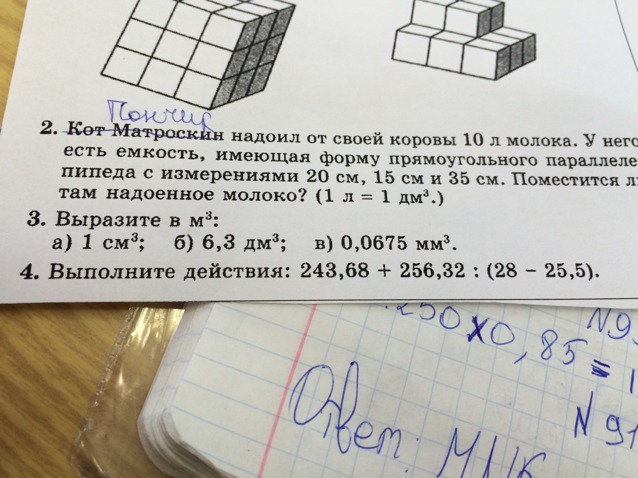 Пончик
2. Кот Матроскин надоил от своей коровы 10 л молока. У него
есть емкость, имеющая форму прямоугольного параллеле
пипеда с измерениями 20 см, 15 см и 35 см. Поместится л
там надоенное молоко? (1 л = 1 дм³.)
3. Выразите в м³:
а) 1 см³; б) 6,3 дм³; в) 0,0675 мм³.
4. Выполните действия: 243,68 + 256,32 : (28 – 25,5).
250 х 0,85 = 1
N 9
N 91
Ответ: